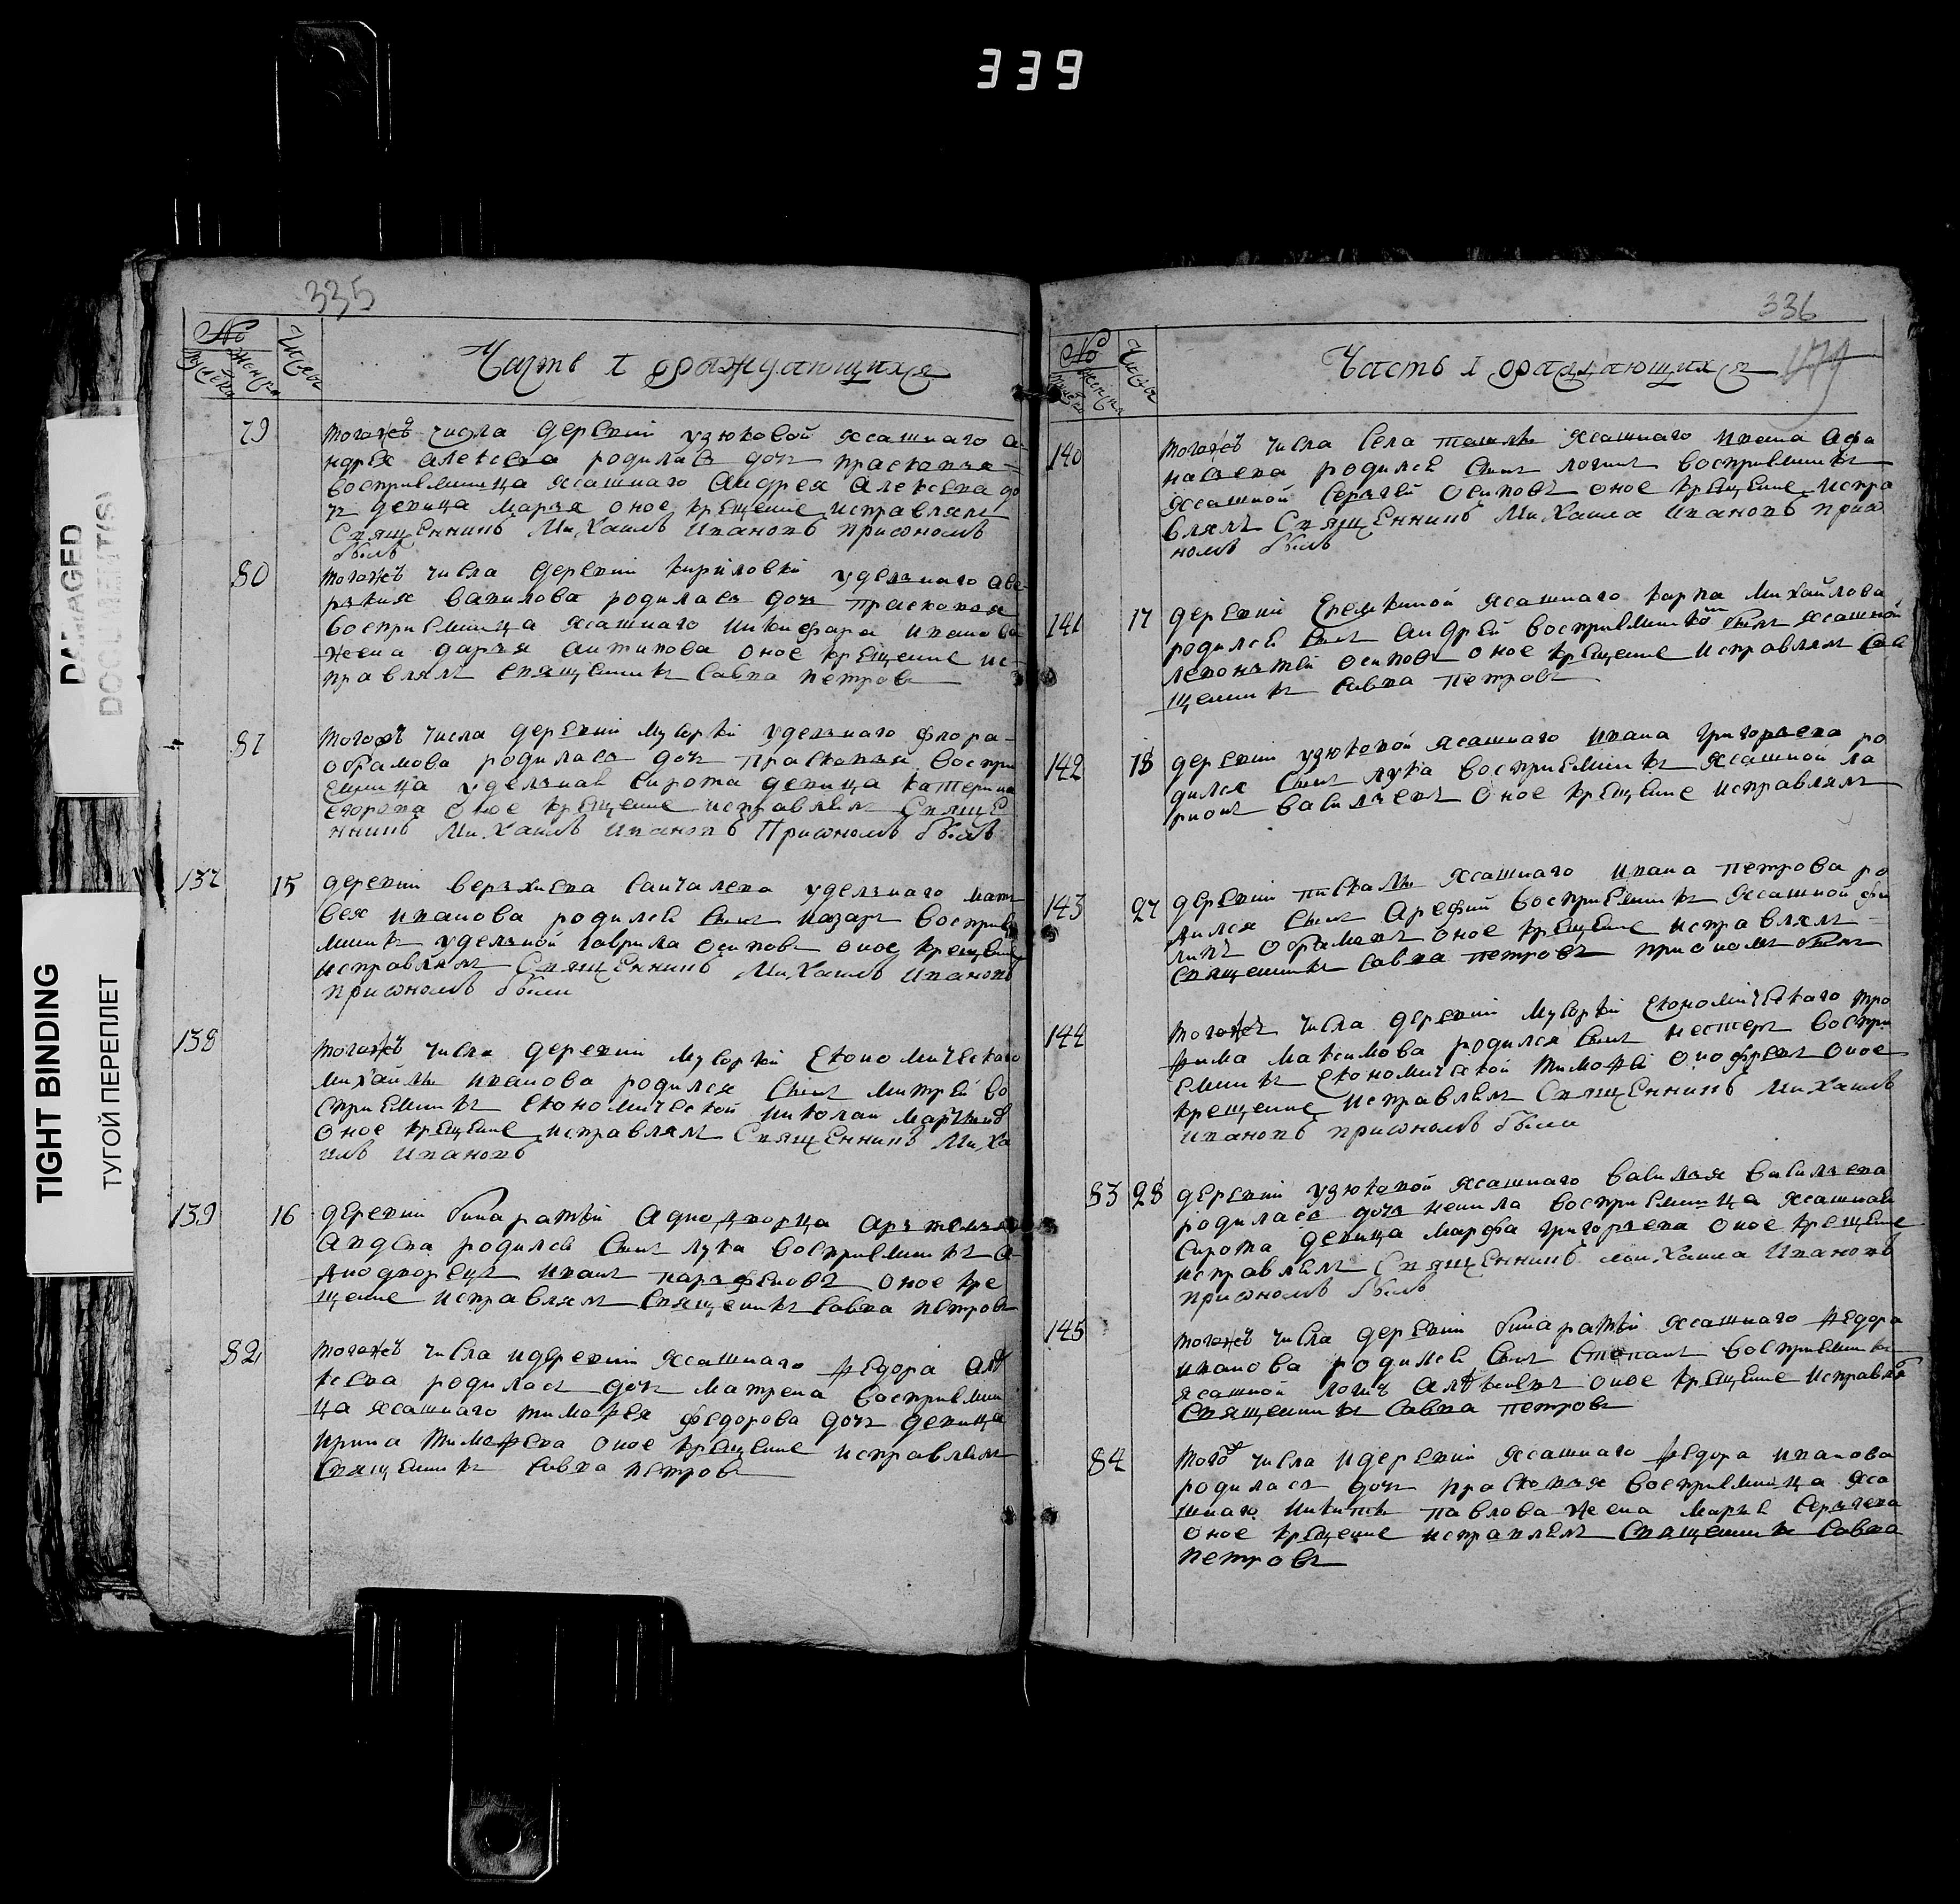 339
DAMAGED
DOCUMENT(S)
TIGHT BINDING
ТУГОЙ ПЕРЕПЛЕТ
335
№
Числа
Часть I ораждающихся
79
тогожъ числа деревни узюковой ясашнаго а-
ндрея алексева родилась дочь прасковья
восприемница ясашнаго Андрея Алексева до
чь девица марья оное крещение исправлялъ
Священникъ Михаилъ Ивановъ присономъ
былъ
80
тогожъ числа деревни кириловки удельнаго аве-
рькия вавилова родилась дочь прасковья
восприемница ясашнаго никифара иванова
жена дарья антипова оное крещение ис-
правлялъ священникъ савва петровъ
81
тогожъ числа деревни мусорки удельнаго флора
обрамова родилась дочь прасковья воспри
емница удельная сирота девица катерина
егорова оное крещение исправлялъ Свяще
нникъ Михаилъ Ивановъ Присономъ былъ
137
15
деревни верьхнева санчалева удельнаго мат
вея иванова родился сынъ назаръ восприе
мникъ удельной гаврила осиповъ оное крещение
исправлялъ Священникъ Михаилъ Ивановъ
присономъ были
138
тогожъ числа деревни мусорки економическаго
михайлы иванова родился сынъ митрей во
сприемникъ економической николаи
оное крещение исправлялъ Священникъ Миха
илъ Ивановъ
139
16
деревни аднодворца
родился сынъ лука восприемникъ а
днодворецъ иванъ парьфеновъ оное кре
щение исправлялъ священникъ савва петровъ
82
тогожъ числа идеревни ясашнаго федора алѣ
ксева родилась дочь матрена восприемни
ца ясашнаго тимофея федорова дочь девица
ирина тимофева оное крещение исправлялъ
священникъ савва петровъ
336
179
№
Числа
Часть I ораждающихся
140
тогожъ числа села ташлы ясашнаго ивана афа
насьева родился сынъ логинъ восприемникъ
ясашной сергѣй осиповъ оное крещение испра
влялъ Священникъ Михаила Ивановъ присо
номъ былъ
141
17
деревни еремкиной ясашнаго карпа михайлова
родился сынъ андрей восприемникомъ былъ ясашной
леконьтей осиповъ оное крещение исправлялъ свя
щенникъ савва петровъ
142
18
деревни узюковой ясашнаго ивана григорьева ро
дился сынъ лука восприемникъ ясашной ла
рионъ васильевъ оное крещение исправлялъ
143
27
деревни пискалы ясашнаго ивана петрова ро
дился сынъ арефий восприемникъ ясашной фи
липъ обрамовъ оное крещение исправлялъ
священникъ савва петровъ приономъ былъ
144
тогожъ числа деревни мусорки економическаго тро
фима максимова родился сынъ нестеръ воспри
емникъ економической тимофей оное
крещение исправлялъ Священникъ Михаилъ
ивановъ присономъ были
83
28
деревни узюковой ясашнаго василья васильева
родилась дочь ненила восприемница ясашная
сирота девица марфа григорьева оное крещение
исправлялъ Священникъ михаила Ивановъ
присономъ былъ
145
тогожъ числа деревни ясашнаго федора
иванова родился сынъ степанъ восприемникъ
ясашной логинъ алѣксѣевъ оное крещение исправля
священникъ савва петровъ
84
тогож числа идеревни ясашнаго федора иванова
родилась дочь прасковья восприемница яса
шнаго никиты павлова жена марья сергѣева
оное крещение исправлялъ священникъ савва
петровъ